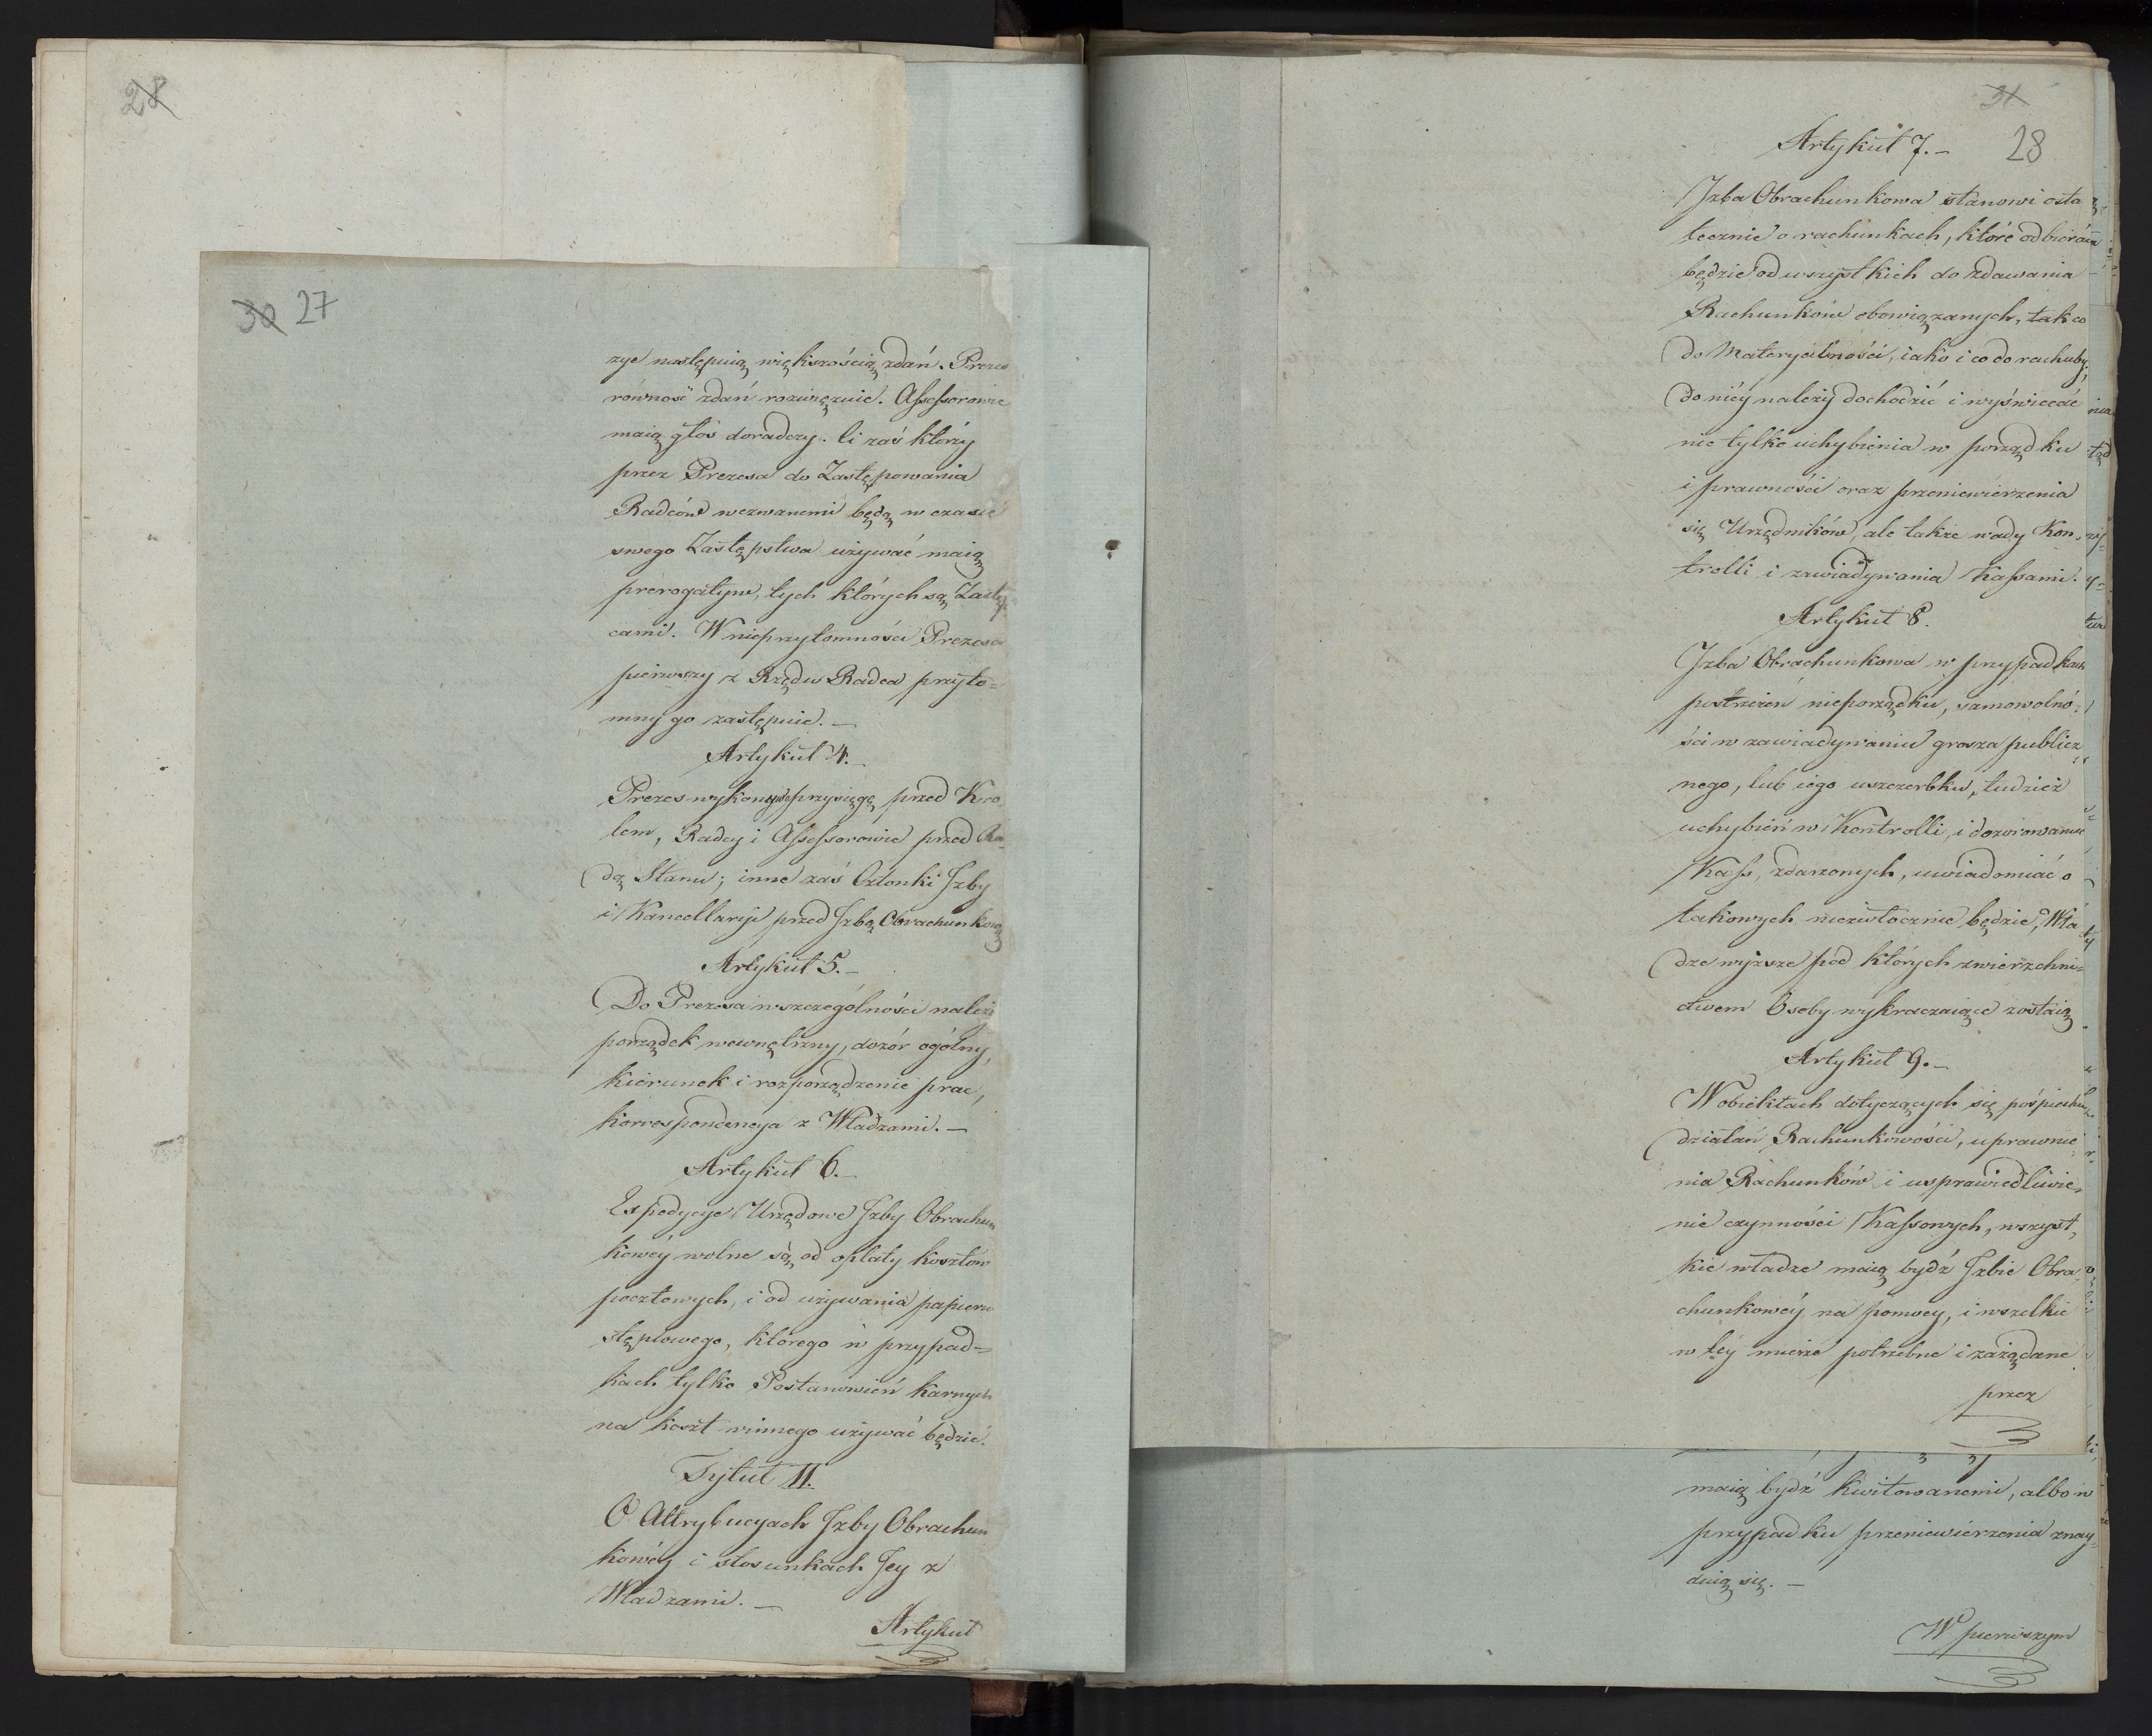 28
30 27
zye następuią większością zdań. Prezes
równość zdań rozwięzuie. Assessorowie
maią głos doradczy. Ci zaś którzy
przez Prezesa do Zastępowania
Radców wezwanemi będą w czasie
swego Zastępstwa używać maią
prerogatyw, tych których są Zastęp
cami. W nieprzytomności Prezesa
pierwszy z Rzędu Radca przyto=
mny go zastępuie. —
Artykuł 4. —
Prezes wykonywa przysięgę przed Kró
lem, Radcy i Assessorowie przed Ra=
dą Stanu; inne zaś Członki Izby
i Kancellaryi przed Izbą Obrachunkową
Artykuł 5. —
Do Prezesa w szczególności należy
porządek wewnętrzny, dozór ogólny,
kierunek i rozporządzenie prac,
korrespondencya z Władzami. —
Artykuł 6. —
Espedycye Urzędowe Izby Obrachun
kowéy wolne są od opłaty kosztów
pocztowych, i od używania papieru
stęplowego, którego w przypad=
kach tylko Postanowień karnych
na koszt winnego używać będzie.
Tytuł II.
O Attrybucyach Izby Obrachun
kowéy i stosunkach Jey z
Władzami. —
Artykuł
31
28
Artykuł 7. —
Izba Obrachunkowa stanowi osta
tecznie o rachunkach, które odbierać
będzie od wszystkich do zdawania
Rachunków obowiązanych, tak co
do Materyalności, iako i co do rachuby;
do niéy należy dochodzić i wyświecać
nie tylko uchybienia w porządku
i prawności oraz przeniewierzenia
się Urzędników, ale także wady Kon=
trolli i zawiadywania Kassami.
Artykuł 8.
Izba Obrachunkowa w przypadkach
postrzeżeń nieporządku, samowolno=
ści w zawiadywaniu grosza publicz
nego, lub iego uszczerbku, tudzież
uchybień w Kontrolli, i dozorowaniu
Kass, zdarzonych, uwiadomiać o
takowych niezwłocznie będzie, Wła
dze wyższe pod których zwierzchni=
ctwem Osoby wykraczaiące zostaią
Artykuł 9. —
W obiektach dotyczących się pośpiechu
działań Rachunkowości, uprawnie
nia Rachunków i usprawiedliwie=
nie czynności Kassowych, wszyst,
kie władze maią bydź Izbie Obra
chunkowéy na pomocy, i wszelkie
w téy mierze potrzebne i zażądane
przez
maią bydź kwitowanemi, albo w
przypadku przeniewierzenia znay=
duią się. —
W pierwszym